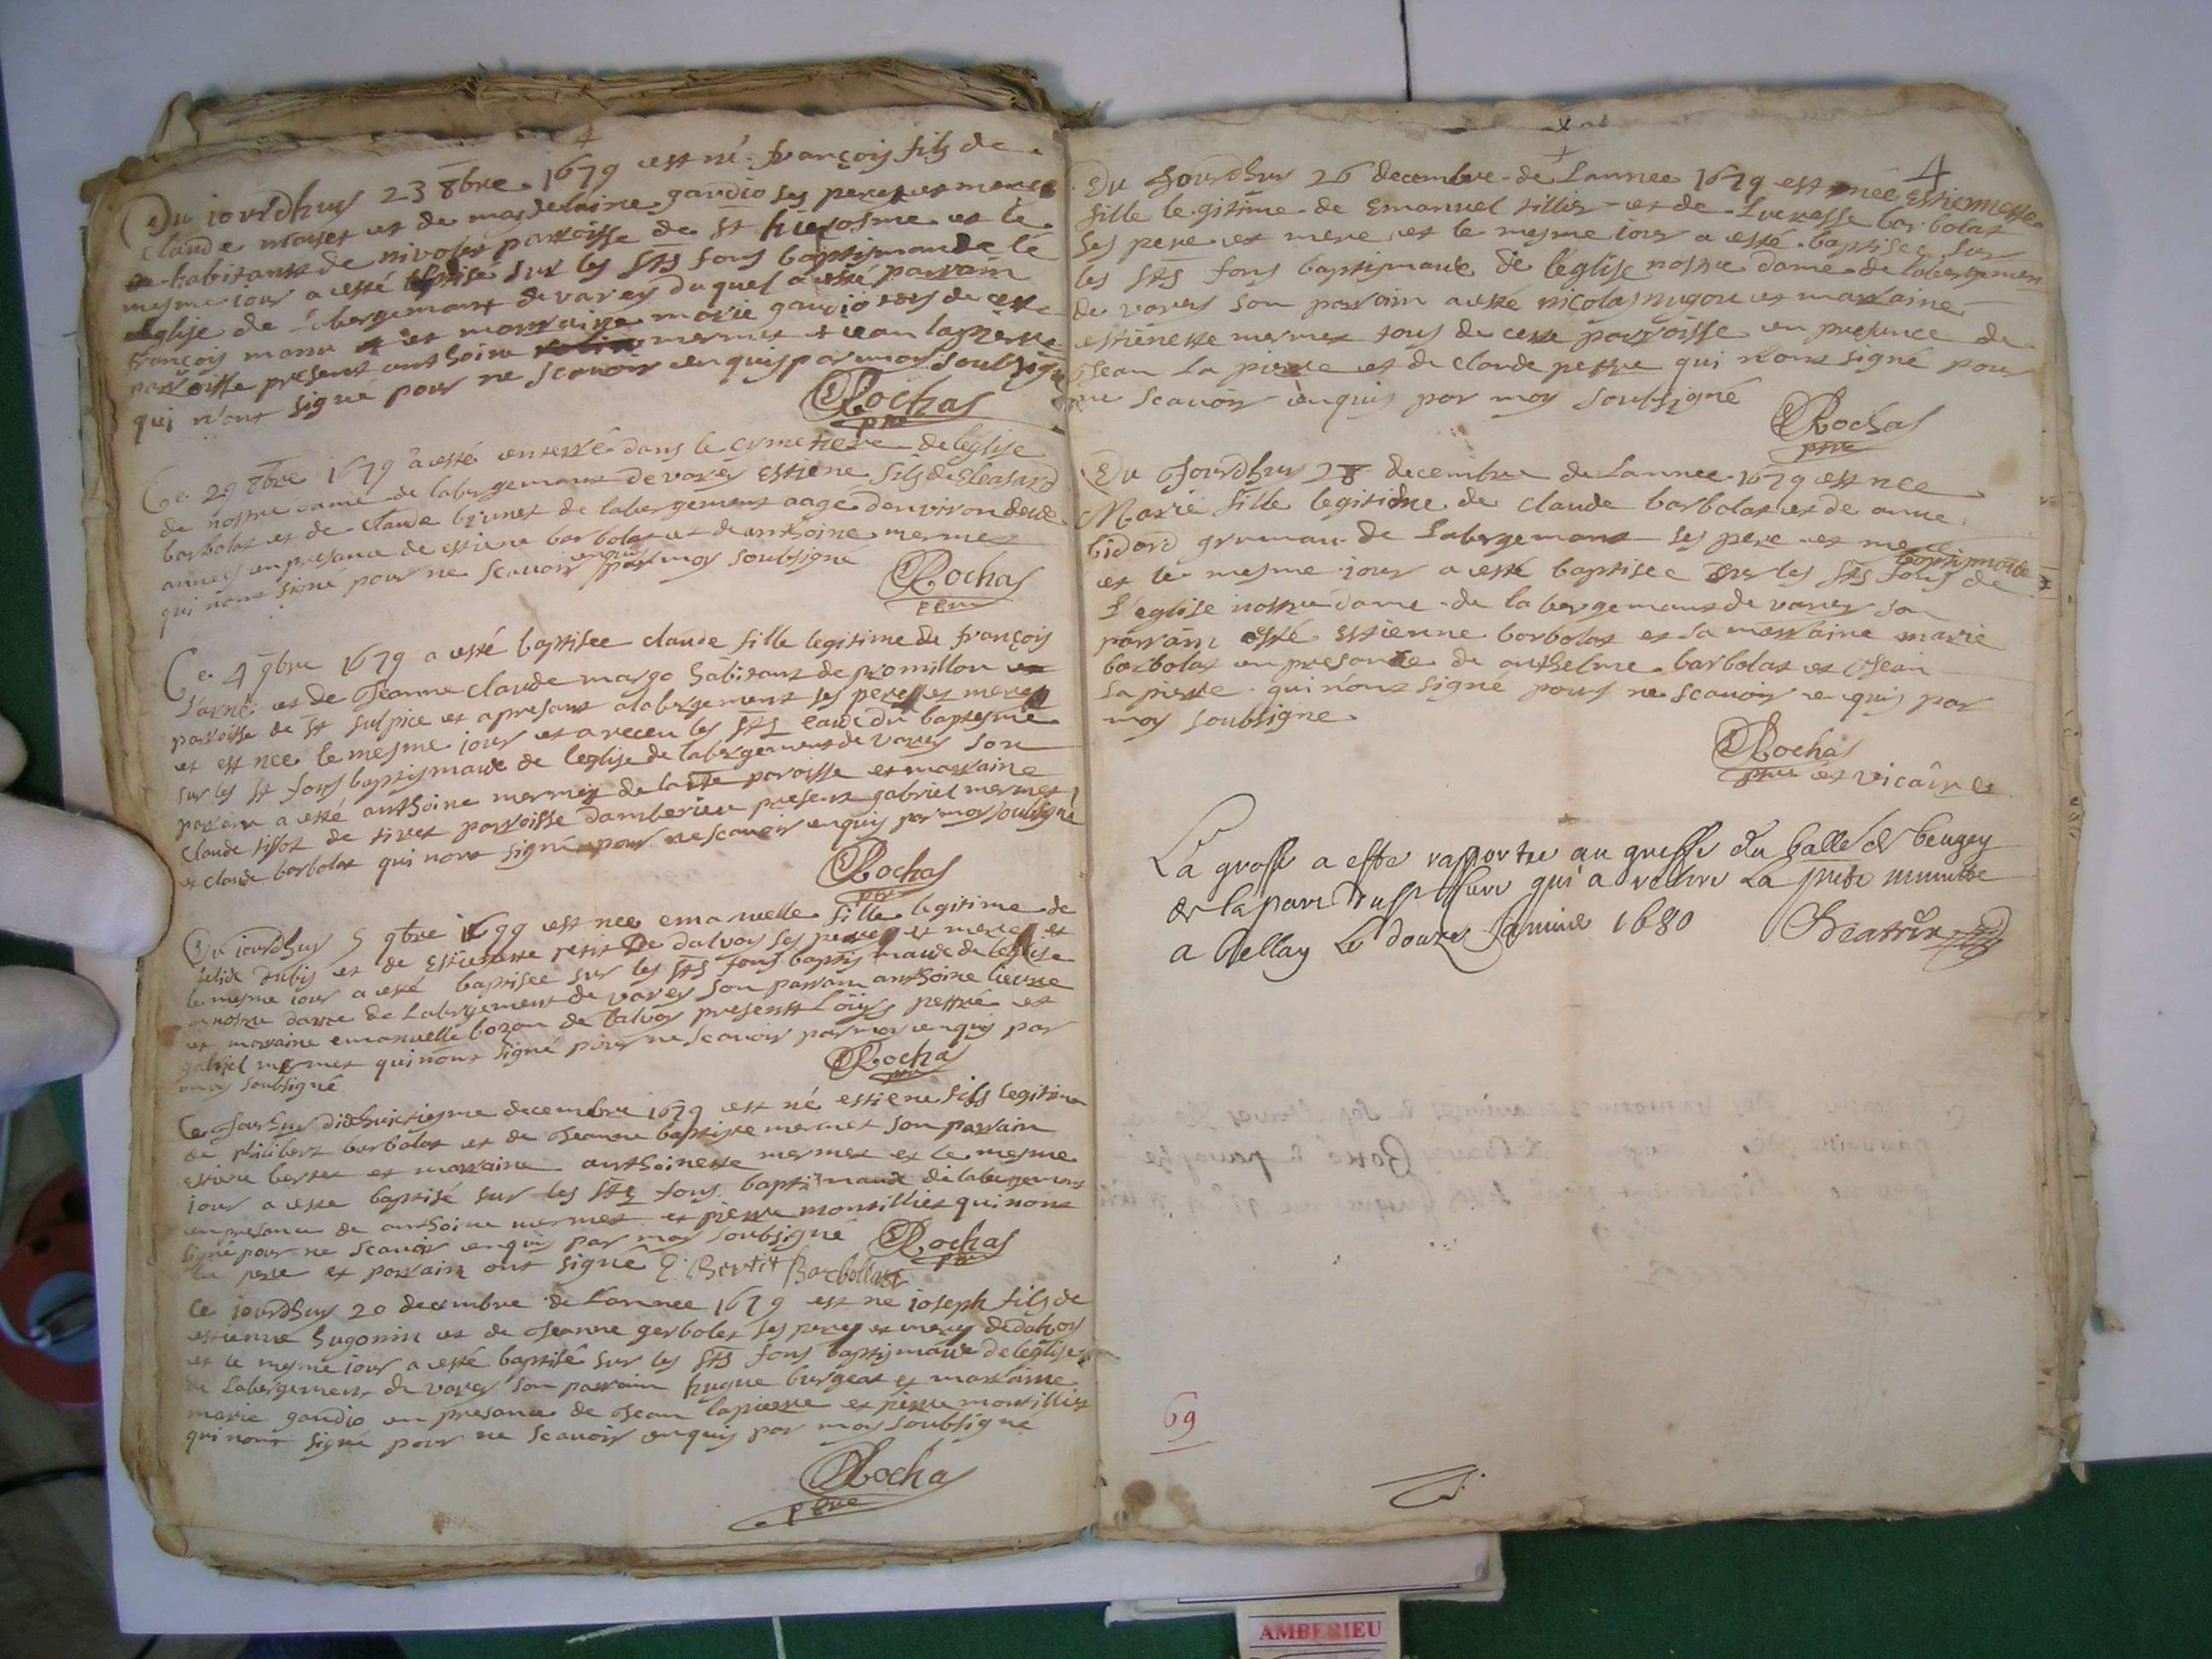 4
Du iourdhuy 23 8bre 1679 est né françois fils de
claude et de magdelaine gaudio ses peres et meres
habitants de nivolet parroisse de st hierosme et le
mesme iour a esté baptisé sur les sts fons baptismaude de
eglise de labergement de varey duquel a esté parrain
françois et marraine marie gaudio tous de ceste
parroisse present anthoine mermet et iean lapierre
qui n'ont signé pour ne scavoir enquis par moy soubsigné
Rochas
pbre
Ce 29 8bre 1679 a esté enterré dans le cymetiere de leglise
de nostre dame de labergemant de varey estiene fils de Eleasard
barbolat et de claude brunet de labergement aagé denviron deux
annees en presance de estiene barbolat et de anthoine mermet
qui n'ont signé pour ne scavoir enquis par moy soubsigné
Rochas
pbre
Ce 4 9bre 1679 a esté baptisee claude fille legitime de françois
et de Jeanne claude margo habitant de promillou
parroisse de st sulpice et apresant a labergement ses peres et meres
et est nee le mesme iour et a receu les sts eaude du baptesme
sur les st fons baptismaude de leglise de labergement de varey son
parrain a esté anthoine mermet de la dte paroisse et marraine
claude tissot de tiret parroisse damberieu present gabriel mermet
et claude barbolat qui nont signé pour ne scavoir enquis par moy soubsigné
Rochas
pbre
Du iourdhuy 5 9bre 1679 est nee emanuelle fille legitime de
dubis et de Estienette petit De dalvoy ses peres et meres et
le mesme iour a esté baptisee sur les sts fons baptismaude de leglise
nostre dame de Labergement de varey son parrain anthoine
et marraine emanuelle bozon de dalvoy present Loüys perrié et
gabriel mermet qui nont signé pour ne scavoir par moy enquis par
moy soubsigné
Rochas
pbre
Ce Jourhuy dixhuictiesme decembre 1679 est né estiene fils legitime
de philibert barbolat et de Jeanne baptiste mermet son parrain
bertet et marraine anthoinette mermet et le mesme
iour a esté baptisé sur les sts fons baptismaude de labergement
en presance de anthoine mermet et pierre montillier qui nont
signé pour ne scavoir enquis par moy soubsigné Rochas
pbre
la pere et parrain ont signé E. Bertet Barbollat
Ce iourdhuy 20 decembre de Lannee 1679 est ne ioseph fils de
estienne hugonin et de Jeanne gerbolet ses peres et meres de dalvoy
et le mesme iour a esté baptisé sur les sts fons baptismaude de leglise
de Labergement de varey son parrain hugue burgeat et marraine
marie gaudio en presance de Jean lapierre et pierre montillier
qui nont signé pour ne scavoir enquis par moy soubsigné
Rochas
pbre
4
Du Jourdhuy 26 decembre de Lannee 1679 est née Estiennette
fille legitime de Emanuel tillier et de Lucresse barbolat
ses pere et mere et le mesme iour a esté baptisee sur
les sts fons baptismaude de léglise nostre dame de labergement
de varey son parrain a esté nicolas nugou et marraine
estienette mermet tous de ceste parroisse en presence de
Jean La pierre et de claude perrre qui n'ont signé pour
ne scavoir enquis par moy soubsigné
Rochas
pbre
Du Jourdhuy 28 decembre de Lannee 1679 est nee
Marie fille legitime de claude barbolat et de anne
lidord de Labergemant ses pere et mere
et le mesme iour a esté baptisee sur les sts fons baptismaude de
L'eglise nostre dame de labergemant de varey son
parrain esté estienne barbolat et sa marraine marie
barbolat en presance de anthelme barbolat et Jean
lapierre qui n'ont signé pour ne scavoir enquis par
moy soubsigne
Rochas
pbre et vicaire
La grosse a esté rapportee au greffe du balle de beugey
de la part dusr cure qui a retire La pnte minutte
a Bellay Le douze Janvier 1680 Beatrix
69
AMBERIEU